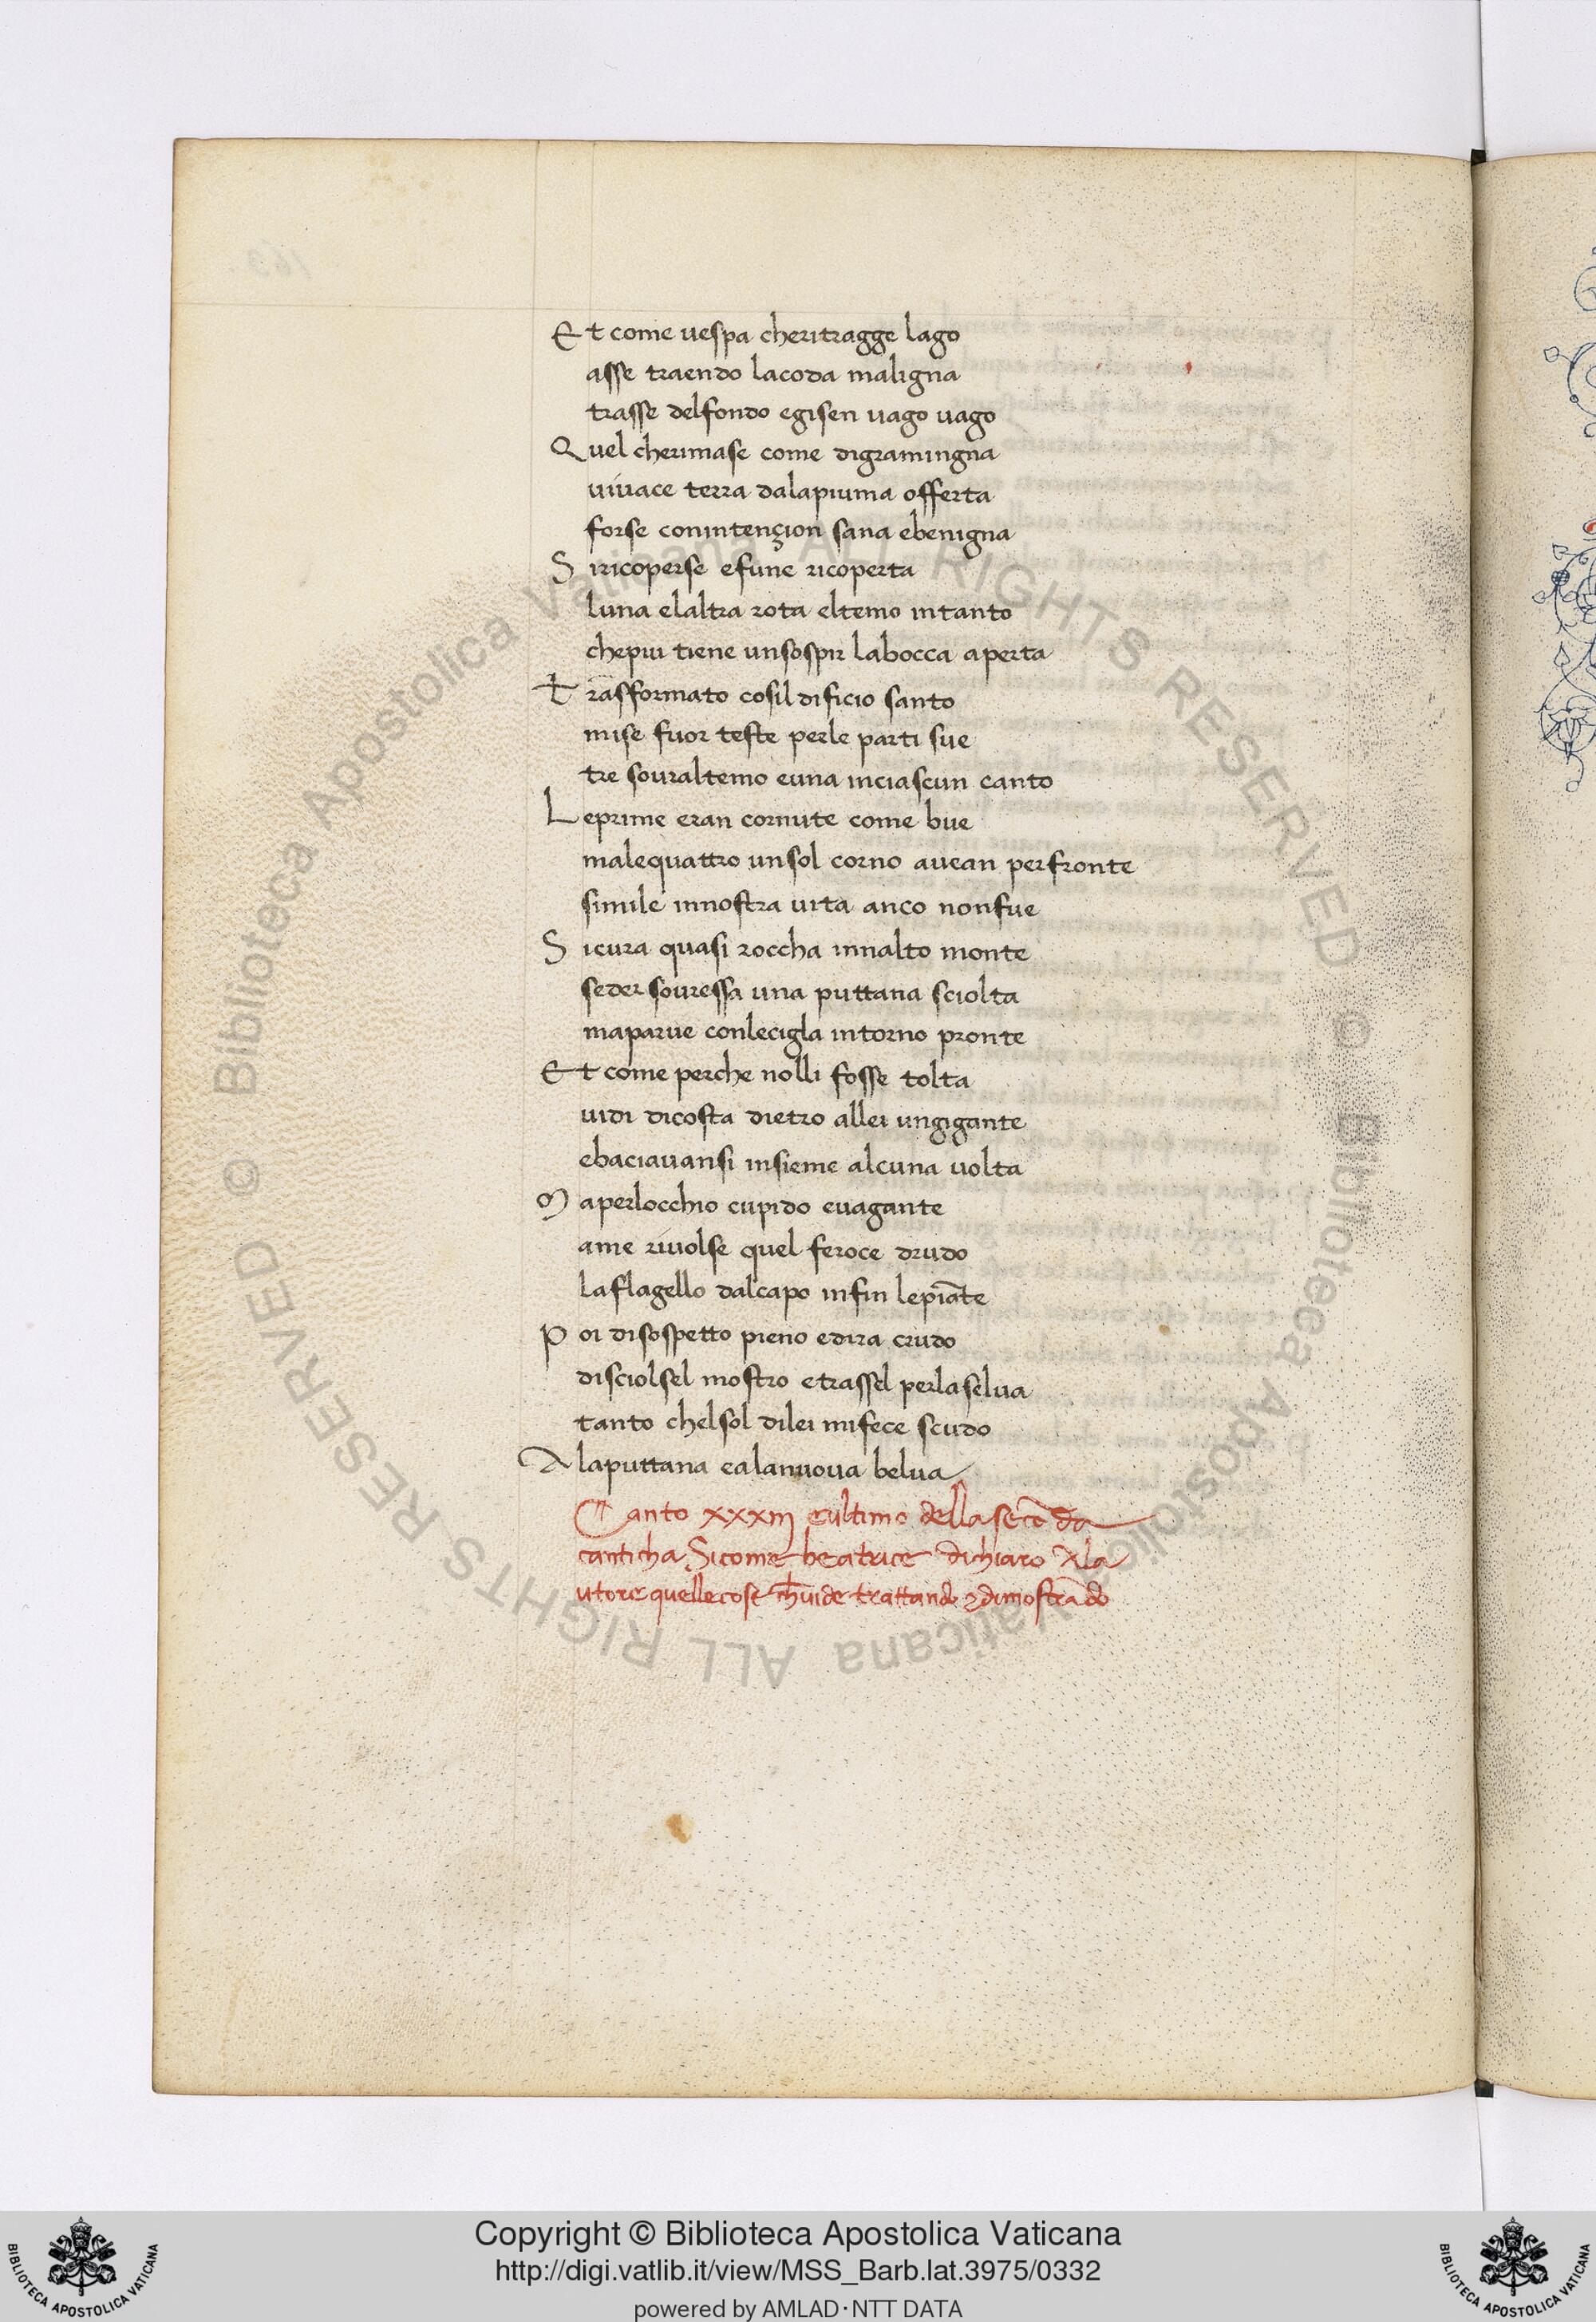 Et come vespa cheritragge lago
asse traendo lacoda maligna
trasse delfondo egisen vago vago
Quel cherimase come digramingna
vivace terra dalapiuma offerta
forse conintençion sana ebenigna
Siricoperse efune ricoperta
luna elaltra rota eltemo intanto
chepiu tiene unsospir labocca aperta
Trāsformato cosil dificio santo
mise fuor teste perle parti sue
tre sovraltemo euna inciascun canto
Leprime eran cornute come bue
malequattro unsol corno avean perfronte
simile innostra vita anco nonfue
Sicura quasi roccha innalto monte
seder sovressa una puttana sciolta
maparve conlecigla intorno pronte
Et come perche nolli fosse tolta
vidi dicosta dietro allei ungigante
ebaciavansi insieme alcuna volta
Maperlocchio cupido evagante
ame rivolse quel feroce drudo
laflagello dalcapo infin lepiāte
Poi disospetto pieno edira crudo
disciolsel mostro etrassel perlaselva
tanto chelsol dilei mifece scudo
Alaputtana ealanuova belva
Canto xxxiij eultimo dellasecōda
canticha. Sicome beatrice dichiaro Ala
utore quellecose ch̄vide trattando ⁊dimostrādo
© Biblioteca Apostolica Vaticana ALL RIGHTS RESERVED © Biblioteca Apostolica Vaticana ALL RIGHTS RESERVED
BIBLIOTECA APOSTOLICA VATICANA
Copyright © Biblioteca Apostolica Vaticana
http://digi.vatlib.it/view/MSS_Barb.lat.3975/0332
powered by AMLAD·NTT DATA
BIBLIOTECA APOSTOLICA VATICANA